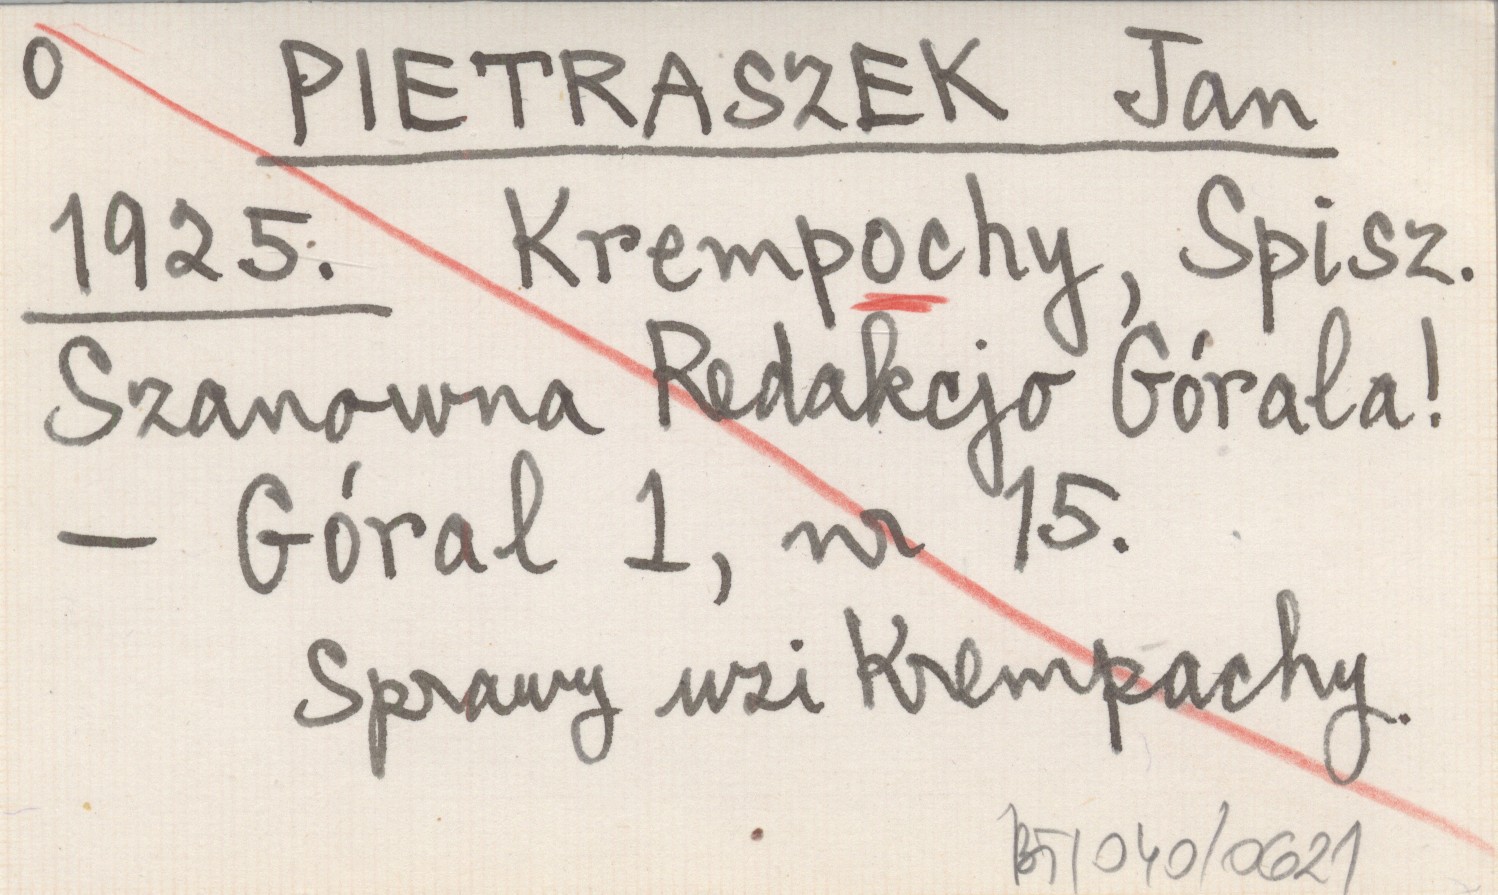 O PIETRASZEK Jan
1925. Krempochy, Spisz.
Szanowna Redakcjo Górala!
— Góral 1, nr 15.
Sprawy wsi Krempachy.
BT/040/0621